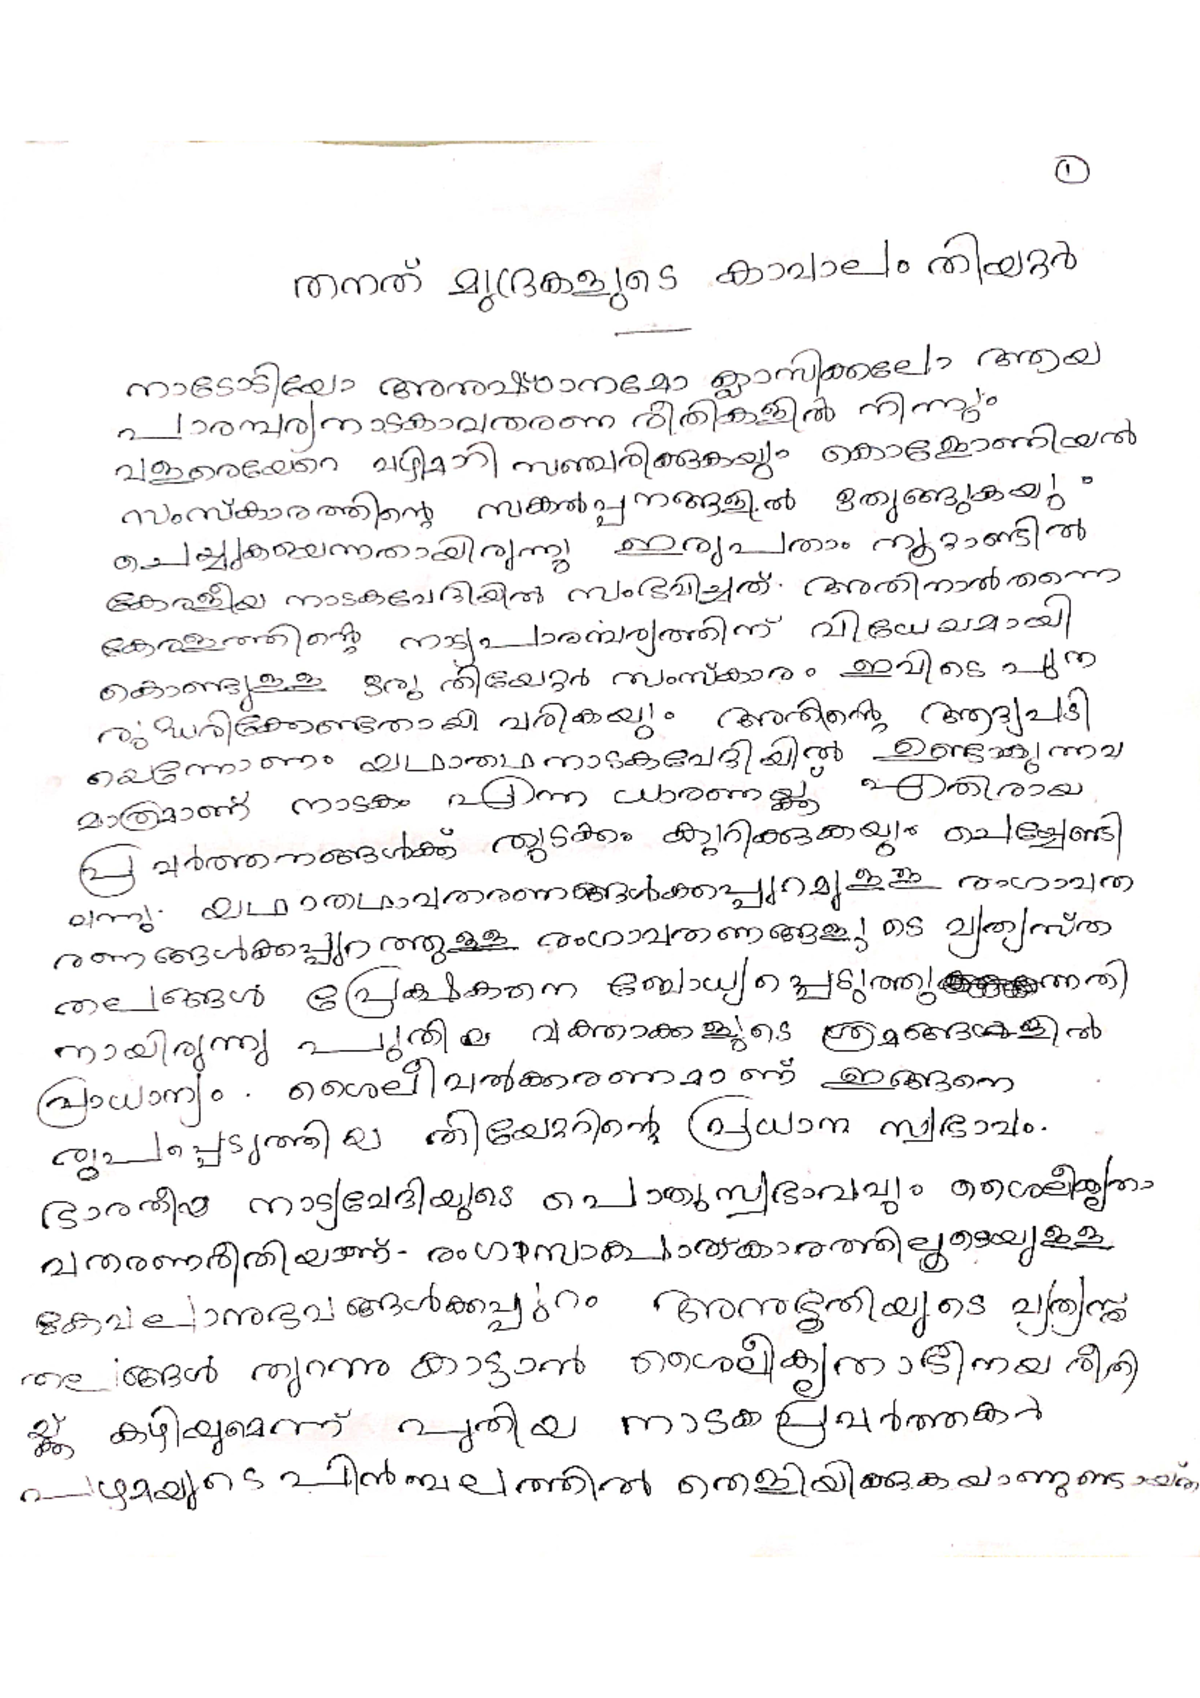 ൧
തനത് മുദ്രകളുടെ കാവാലം തിയറ്റർ
നാടോടിയോ അനുഷ്ഠാനമോ ക്ലാസിക്കലോ ആയ
പാരമ്പര്യനാടകാവതരണ രീതികളിൽ നിന്നും
വളരെയേറെ വഴിമാറി സഞ്ചരിക്കുകയും കൊളോണിയൽ
സംസ്കാരത്തിന്റെ സങ്കൽപ്പനങ്ങളിൽ ഒതുങ്ങുകയും
ചെയ്യുകയെന്നതായിരുന്നു ഇരുപതാം നൂറ്റാണ്ടിൽ
കേരളീയ നാടകവേദിയിൽ സംഭവിച്ചത്. അതിനാൽതന്നെ
കേരളത്തിന്റെ നാട്യപാരമ്പര്യത്തിന് വിധേയമായി
കൊണ്ടുള്ള ഒരു തിയേറ്റർ സംസ്കാരം ഇവിടെ പുന
രുദ്ധരിക്കേണ്ടതായി വരികയും അതിന്റെ ആദ്യപടി
യെന്നോണം യഥാതഥനാടകവേദിയിൽ ഉണ്ടാക്കുന്നവ
മാത്രമാണ് നാടകം എന്ന ധാരണയ്ക്കു എതിരായ
പ്രവർത്തനങ്ങൾക്ക് തുടക്കം കുറിക്കുകയും ചെയ്യേണ്ടി
വന്നു. യഥാതഥാവതരണങ്ങൾക്കപ്പുറമുള്ള രംഗാവത
രണങ്ങൾക്കപ്പുറത്തുള്ള രംഗാവതണങ്ങളുടെ വ്യത്യസ്ത
തലങ്ങൾ പ്രേക്ഷകനെ ബോധ്യപ്പെടുത്തുന്നതി
നായിരുന്നു പുതിയ വക്താക്കളുടെ ശ്രമങ്ങളിൽ
പ്രാധാന്യം. ശൈലീവൽക്കരണമാണ് ഇങ്ങനെ
രൂപപ്പെടുത്തിയ തിയേറ്ററിന്റെ പ്രധാന സ്വഭാവം.
ഭാരതീയ നാട്യവേദിയുടെ പൊതുസ്വഭാവവും ശൈലീകൃതാ
വതരണരീതിയാണ്. രംഗസാക്ഷാത്കാരത്തിലൂടെയുള്ള
കേവലാനുഭവങ്ങൾക്കപ്പുറം അനുഭൂതിയുടെ വ്യത്യസ്ത
തലങ്ങൾ തുറന്നു കാട്ടാൻ ശൈലീകൃതാഭിനയ രീതി
യ്ക്ക് കഴിയുമെന്ന് പുതിയ നാടക പ്രവർത്തകർ
പഴമയുടെ പിൻബലത്തിൽ തെളിയിക്കുകയാണുണ്ടായ്ത